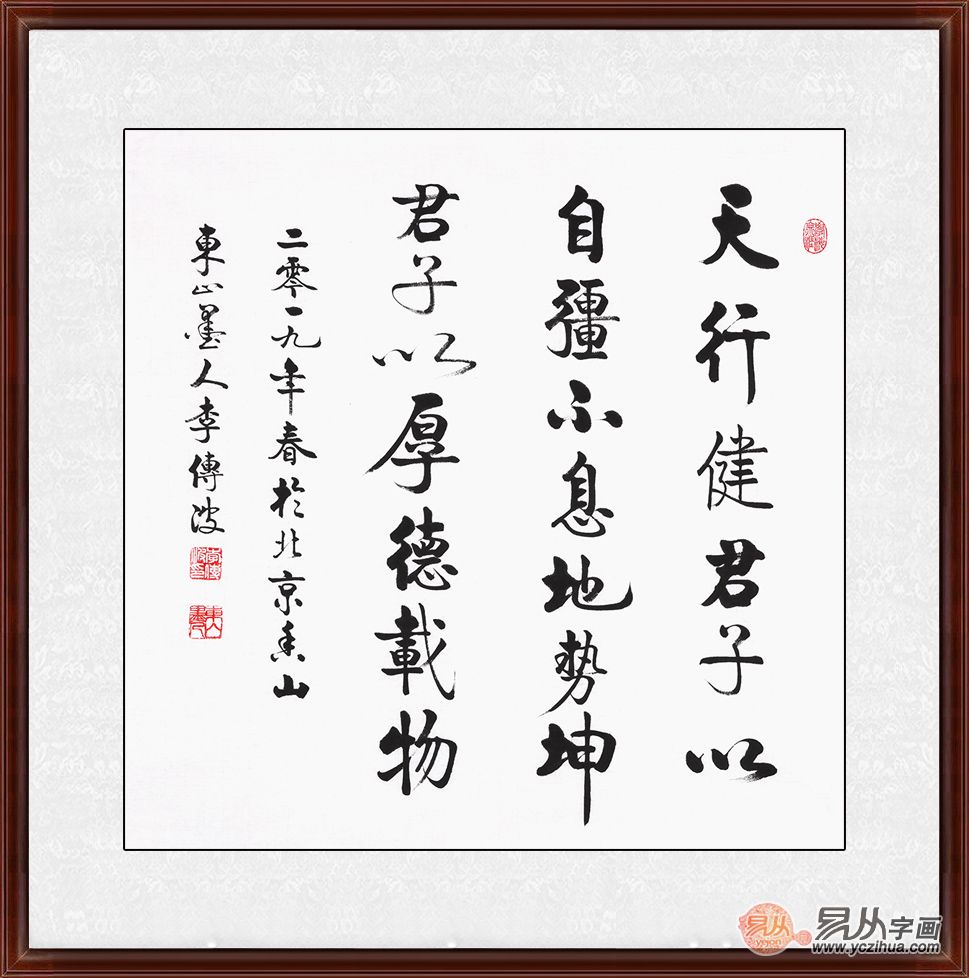 天行健君子以
自彊不息地势坤
君子以厚德載物
二零一九年春於北京香山
東山墨人李傳波
易从
yicon
易从字画
www.yczihua.com